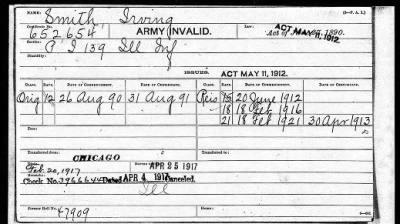 NAME: Smith Irving (3—P. A. I.)
Certificate No. LAW: ACT MAY 11, 1912.
652654 ARMY INVALID. Act of 1890.
A I 139 Ill Inf
Disability:
ISSUES. ACT MAY 11, 1912.
CLASS. RATE. DATE OF COMMENCEMENT. DATE OF CERTIFICATE. CLASS. RATE. DATE OF COMMENCEMENT. DATE OF CERTIFICATE.
Orig 12 26 Aug 90 31 Aug 91 Reis 15 20 June 1912
18 18 Feb 1916
21 18 Feb 1921 30 Apr 1913
Transferred from Transferred to
CHICAGO APR 25 1917
Died
Feb. 20, 1917
Check No. Dated APR 4 1917 Canceled.
Ill
Former Roll No.
47909